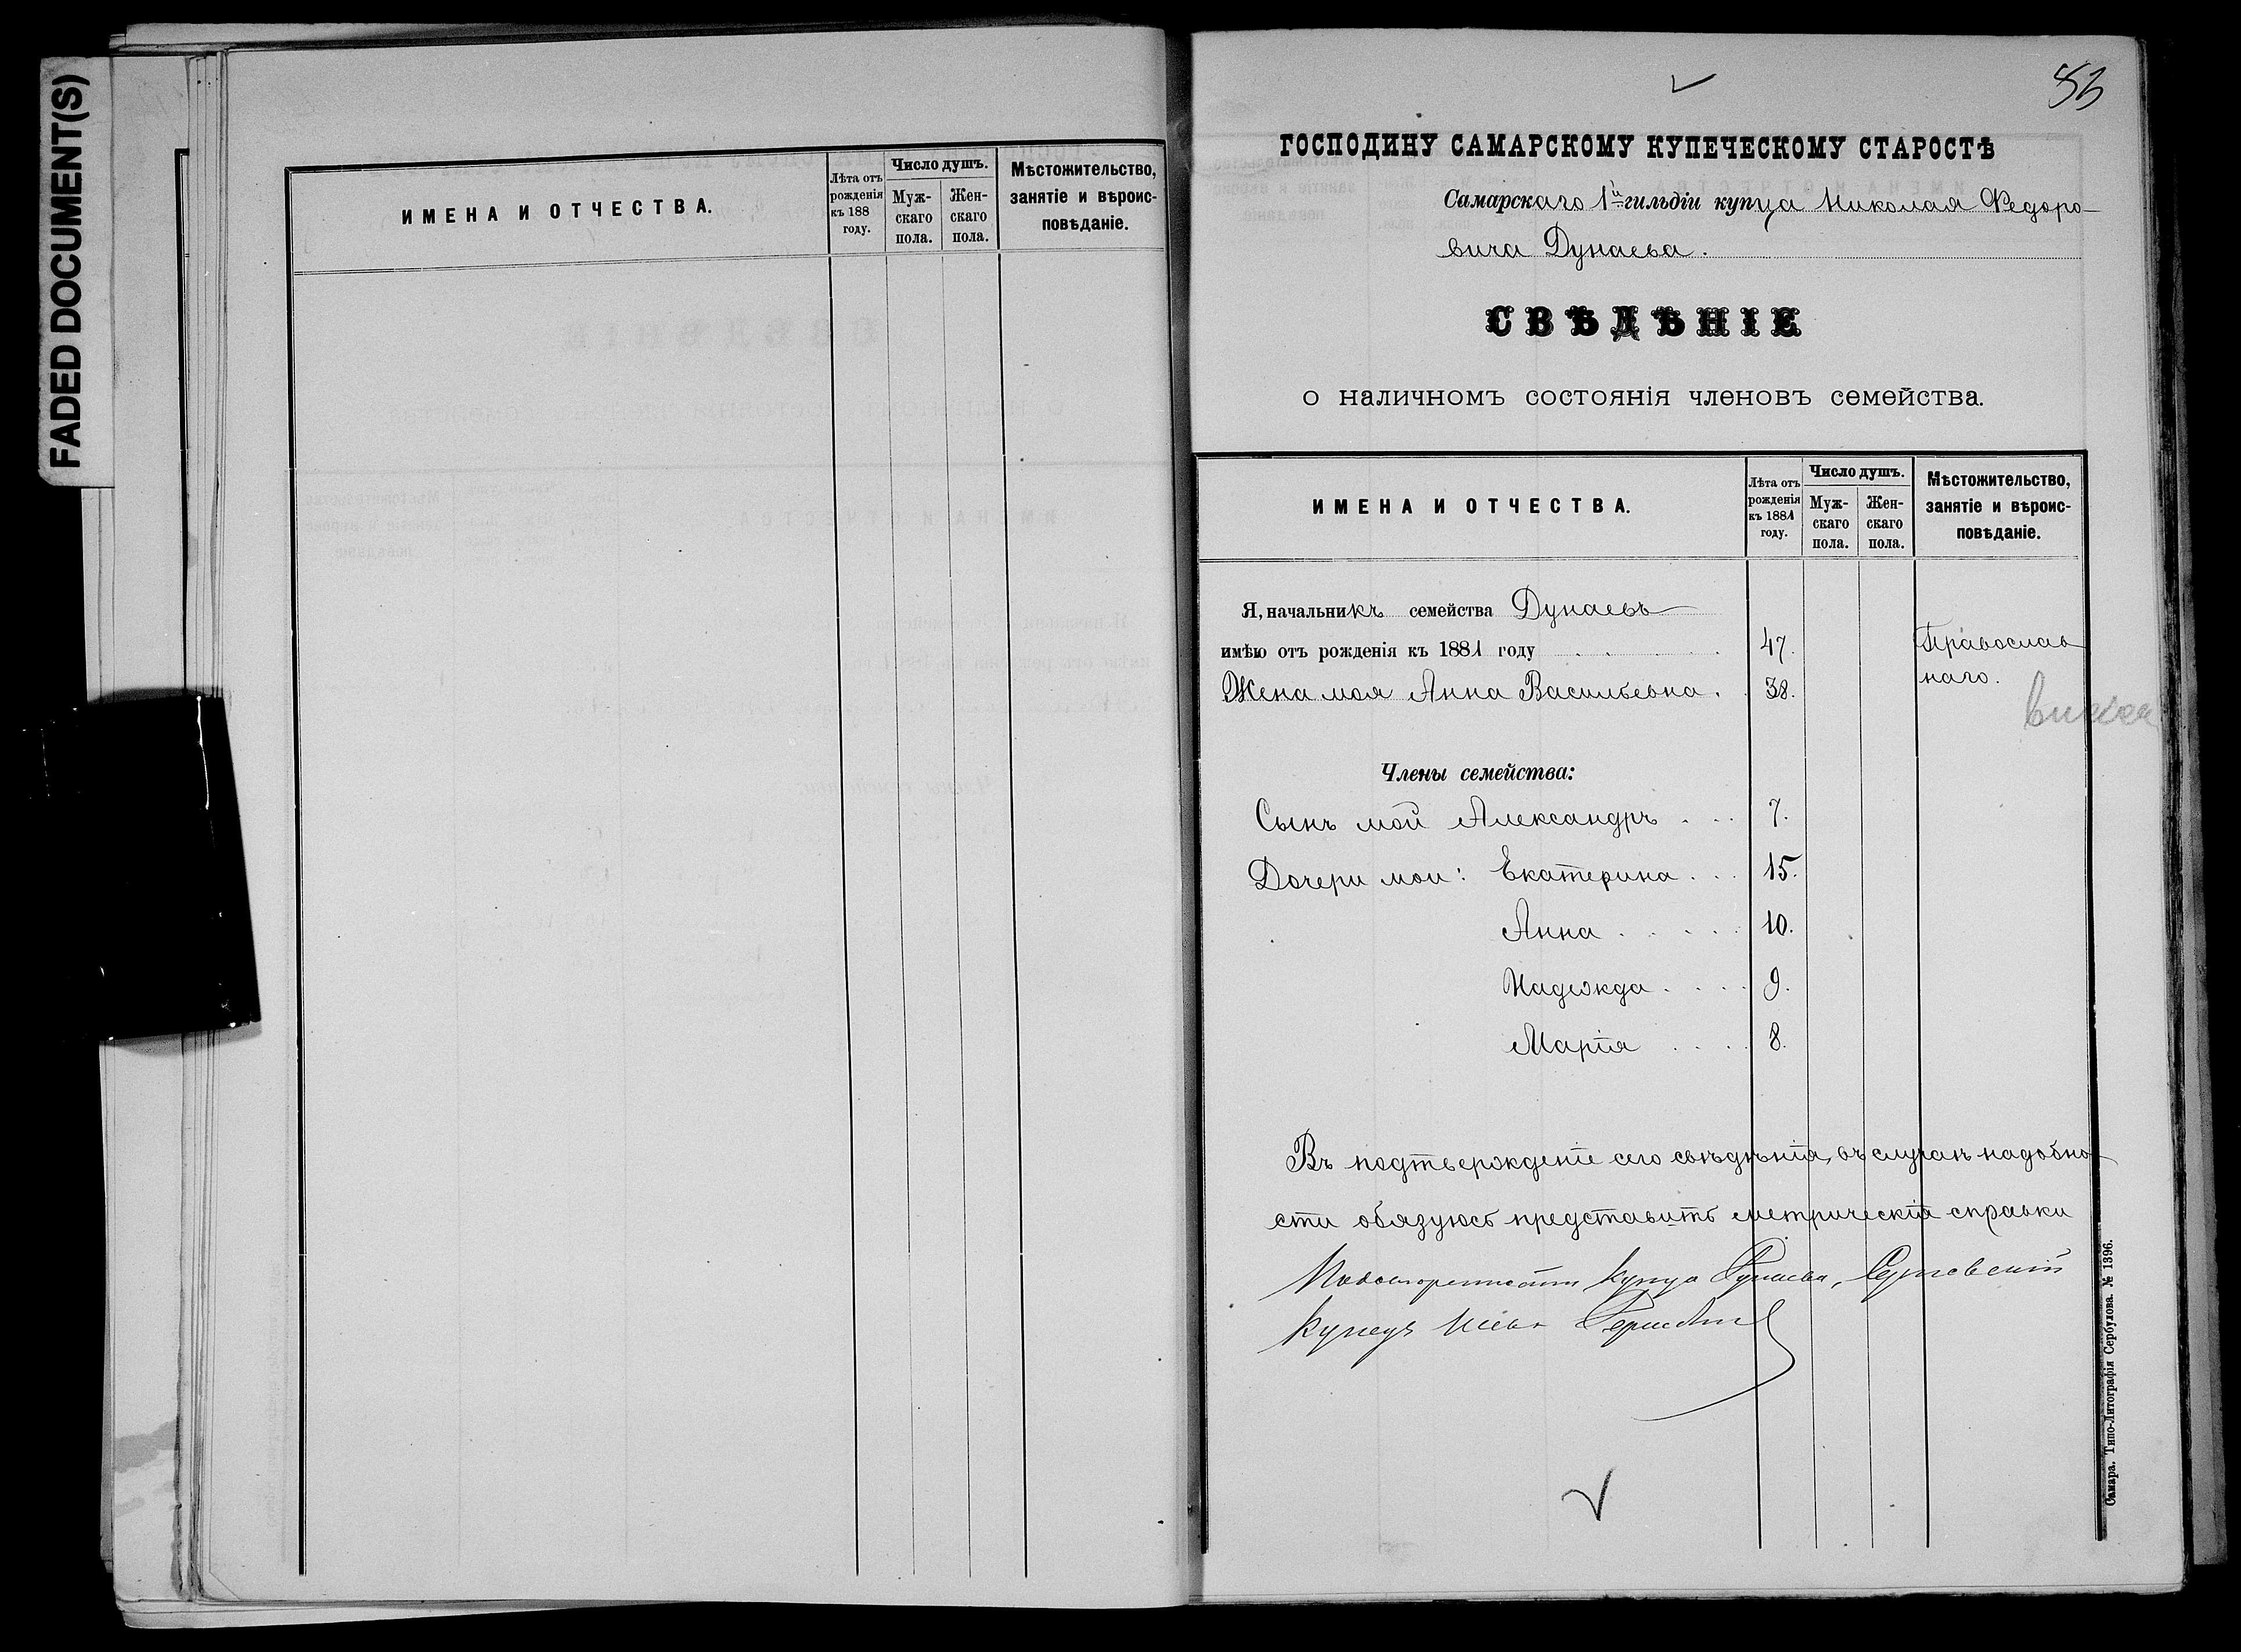 FADED DOCUMENT(S)
ИМЕНА И ОТЧЕСТВА.
Лѣта отъ рожденія къ 188 году.
Число душъ.
Мужскаго пола.
Женскаго пола.
Мѣстожительство, занятіе и вѣроисповѣданіе.
53
ГОСПОДИНУ САМАРСКОМУ КУПЕЧЕСКОМУ СТАРОСТѢ
Самарскаго 1й гильдіи купца Николая Федоро-
вича Дунаева.
СВѢДѢНІЕ
о наличномъ состоянія членовъ семейства.
ИМЕНА И ОТЧЕСТВА.
Лѣта отъ рожденія къ 1881 году.
Число душъ.
Муж-скаго пола.
Жен-скаго пола.
Мѣстожительство, занятіе и вѣроис-повѣданіе.
Я, начальникъ семейства Дунаевъ
имѣю отъ рожденія къ 1881 году 47. Православ
Жена моя Анна Васильевна. 38. наго.
Члены семейства:
Сынъ мой Александръ 7.
Дочери мои: Екатерина 15.
Анна 10.
Надежда 9.
Марія 8.
Въ подтвержденіе сего свѣдѣнія, въ случаѣ надобно-
сти обязуюсь представить метрическія справки
купца Дунаева,
Купецъ
Самара. Типо-Литографія Сербулова. № 1396.